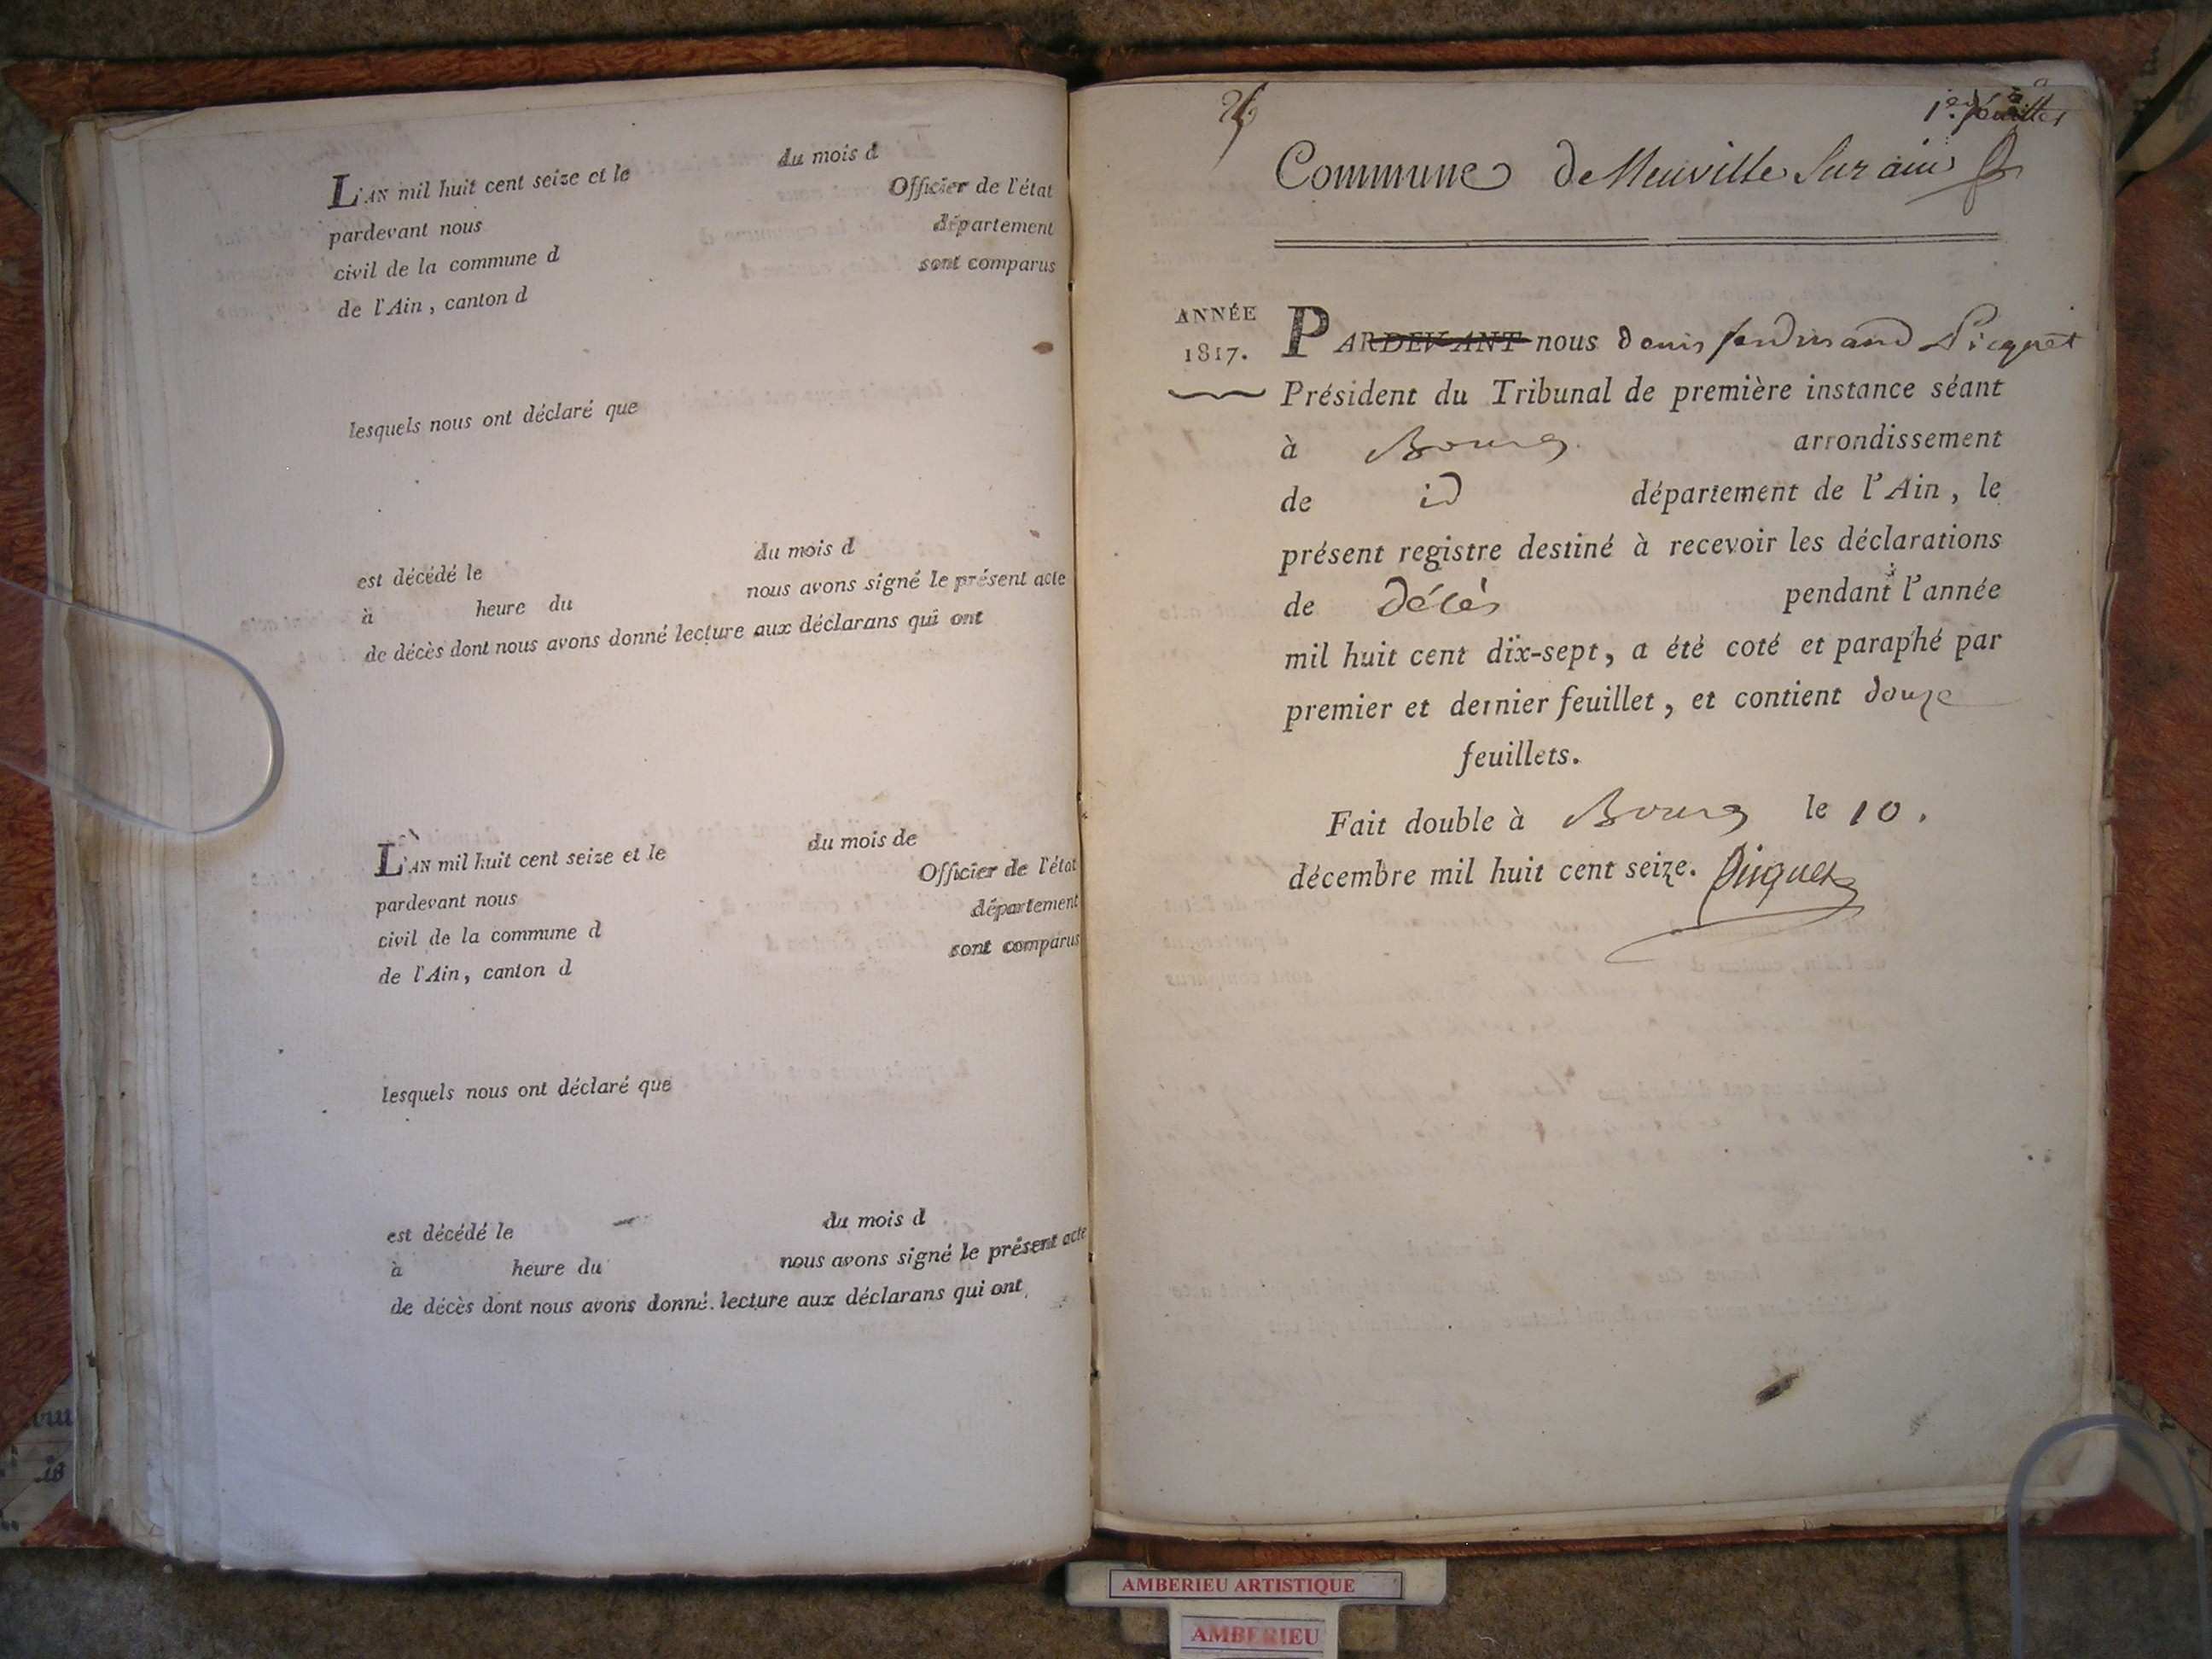 du mois d
L'AN mil huit cent seize et le
Officier de l'état
pardevant nous
département
civil de la commune d
sont comparus
de l'Ain, canton d
lesquels nous ont déclaré que
du mois d
est décédé le
nous avons signé le présent acte
à heure du
de décès dont nous avons donné lecture aux déclarans qui ont
du mois de
L'AN mil huit cent seize et le
Officier de l'état
pardevant nous
département
civil de la commune d
sont comparus
de l'Ain, canton d
lesquels nous ont déclaré que
du mois d
est décédé le
nous avons signé le présent acte
à heure du
de décès dont nous avons donné lecture aux déclarans qui ont
1er feuillet
Commune de Neuville Sur ain
ANNÉE
1817.
PARDEVANT nous denis ferdinand Picquet
Président du Tribunal de première instance séant
à Bourg arrondissement
de id département de l'Ain, le
présent registre destiné à recevoir les déclarations
de Décès pendant l'année
mil huit cent dix-sept, a été coté et paraphé par
premier et dernier feuillet, et contient douze
feuillets.
Fait double à Bourg le 10.
décembre mil huit cent seize. Picquet
AMBERIEU ARTISTIQUE
AMBERIEU